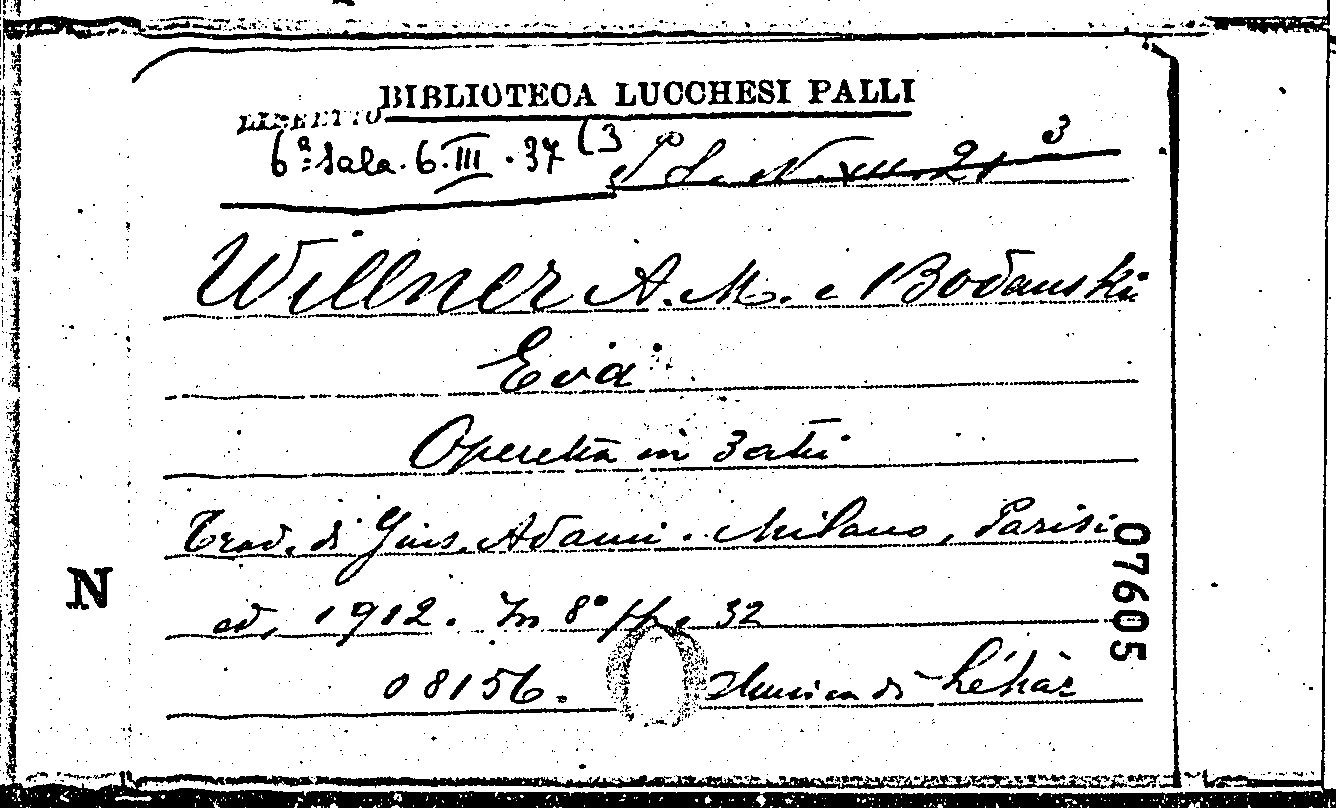 BIBLIOTECA LUCCHESI PALLI
LIBRETTO
6ª Sala. 6. III. 37 (3
Willner A. M. e Bodanski
Eva
Operetta in 3 atti
Trad. di Gius. Adami. Milano, Parisi
ed, 1912. In 8° pp. 32
08156. Musica di Léhàr
N
07605